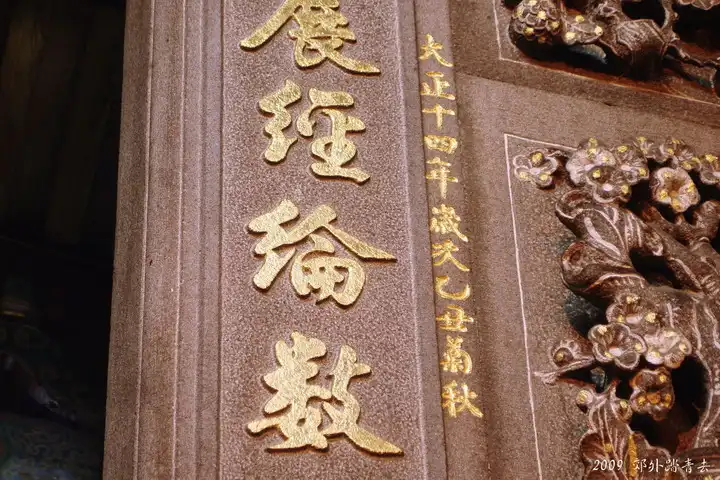 展經綸數
大正十四年歲次乙丑菊秋
2009 郊外踏青去